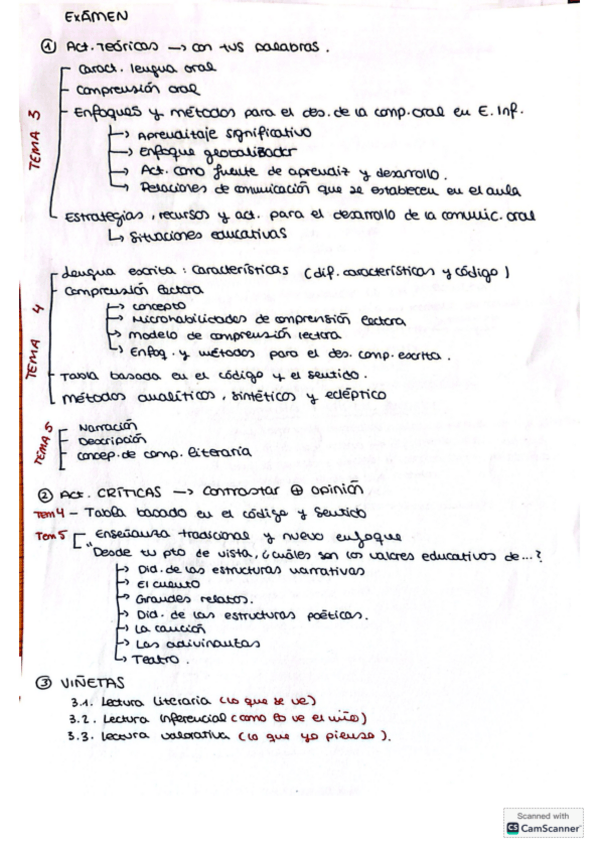 EXÁMEN
① Act. Teóricas → con tus palabras.
TEMA 3
Caract. lengua oral
Comprensión oral
Enfoques y métodos para el des. de la comp. oral en E. Inf.
→ Aprendizaje significativo
→ Enfoque globalizador
→ Act. como fuente de aprendiz y desarrollo.
→ Relaciones de comunicación que se establecen en el aula
Estrategias, recursos y act. para el desarrollo de la comunic. oral
↳ Situaciones educativas
TEMA 4
Lengua escrita: Características (dif. características y código)
Comprensión lectora
→ concepto
→ Microhabilidades de comprensión lectora
→ modelo de comprensión lectora
↳ Enfoq. y métodos para el des. comp. escrita.
Tabla basada en el código y el sentido.
Métodos analíticos, sintéticos y ecléptico
TEMA 5
Narración
Descripción
Concep. de comp. literaria
② Act. CRÍTICAS → Contrastar ⊕ opinión
Tem 4 – Tabla basado en el código y sentido
Tem 5
Enseñanza tradicional y nuevo enfoque
"Desde tu pto de vista, ¿cuáles son los valores educativos de...?
→ Did. de las estructuras narrativas
→ El cuento
→ Grandes relatos.
→ Did. de las estructuras poéticas.
→ La canción
→ Las adivinantas
↳ Teatro.
③ VIÑETAS
3.1. Lectura literaria (lo que se ve)
3.2. Lectura inferencial (como lo ve el niño)
3.3. Lectura valorativa (lo que yo pienso).
Scanned with
CS CamScanner